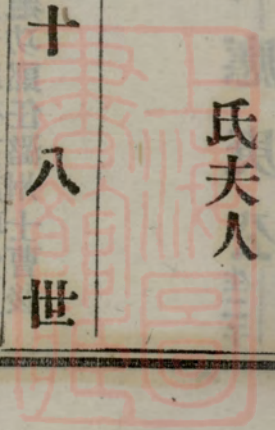 氏夫人
十八世